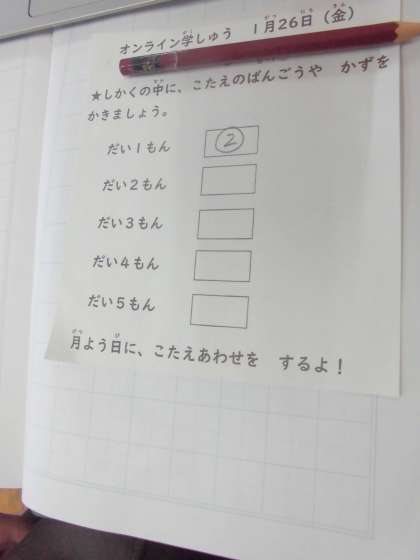 オンライン学しゅう　1月26日（金）
★しかくの中に、こたえのばんごうや　かずを
かきましょう。
だい1もん　②
だい2もん
だい3もん
だい4もん
だい5もん
月よう日に、こたえあわせを　するよ！